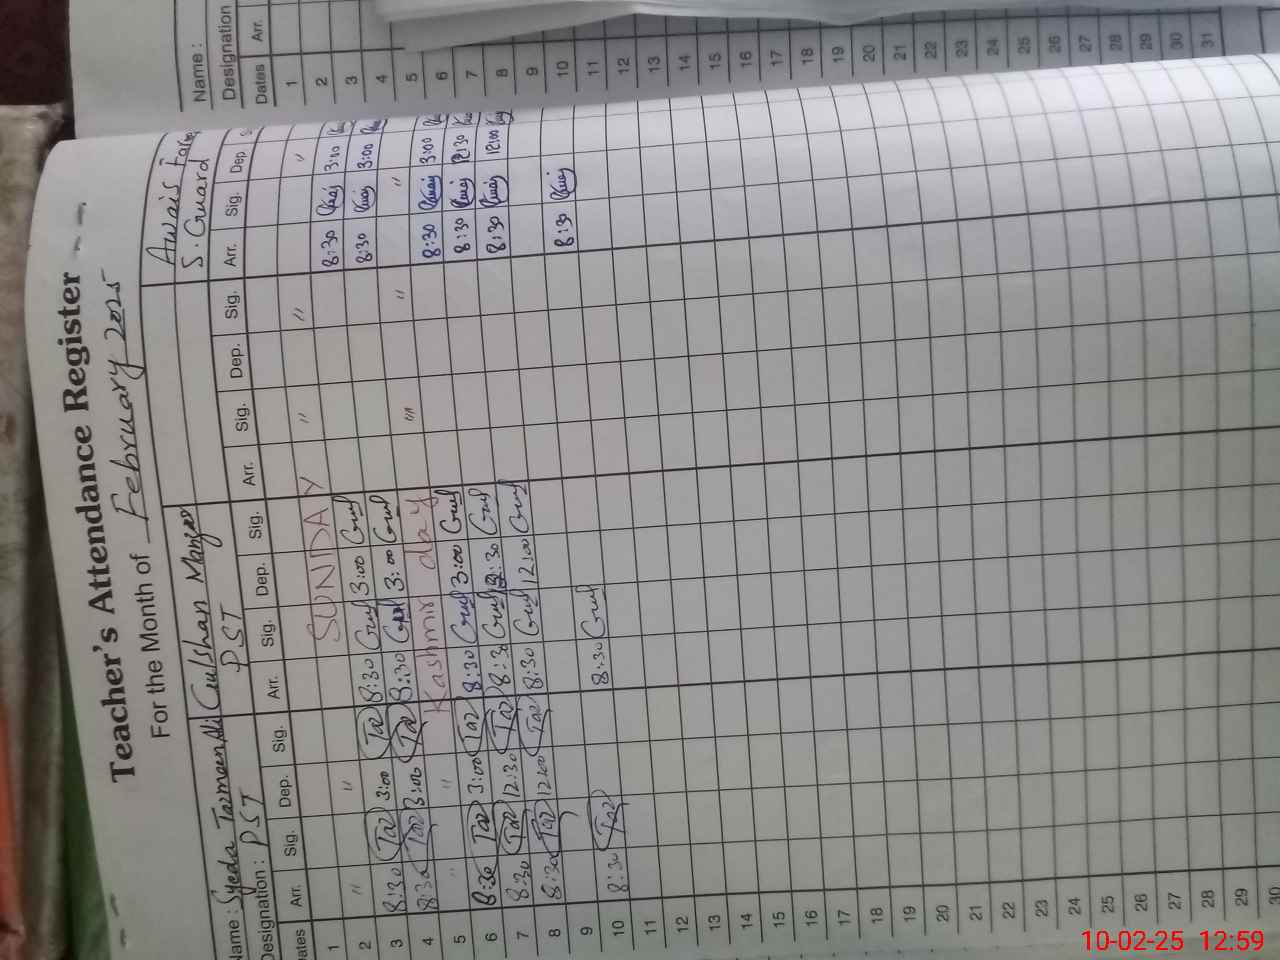 Teacher's Attendance Register
For the Month of February 2025
Name : Syeda Tazmeen Ali Gulshan Awais
Designation : PST PST S. Guard
Dates Arr. Sig. Dep. Sig. Arr. Sig. Dep. Sig. Arr. Sig. Dep. Sig. Arr. Sig. Dep.
1
2 " " SUNDAY " " "
3 8:30 Taz 3:00 Taz 8:30 Gul 3:00 Gul 8:30 3:00
4 8:30 Taz 3:00 Taz 8:30 Gul 3:00 Gul 8:30 3:00
5 " " Kashmir day " " "
6 8:30 Taz 3:00 Taz 8:30 Gul 3:00 Gul 8:30 3:00
7 8:30 Taz 12:30 Taz 8:30 Gul 12:30 Gul 8:30 12:30
8 8:30 Taz 12:00 Taz 8:30 Gul 12:00 Gul 8:30 12:00
9
10 8:30 Taz 8:30 Gul 8:30
11
12
13
14
15
16
17
18
19
20
21
22
23
24
25
26
27
28
29
30
Name :
Designation
Dates Arr.
1
2
3
4
5
6
7
8
9
10
11
12
13
14
15
16
17
18
19
20
21
22
23
24
25
26
27
28
29
30
31
10-02-25 12:59